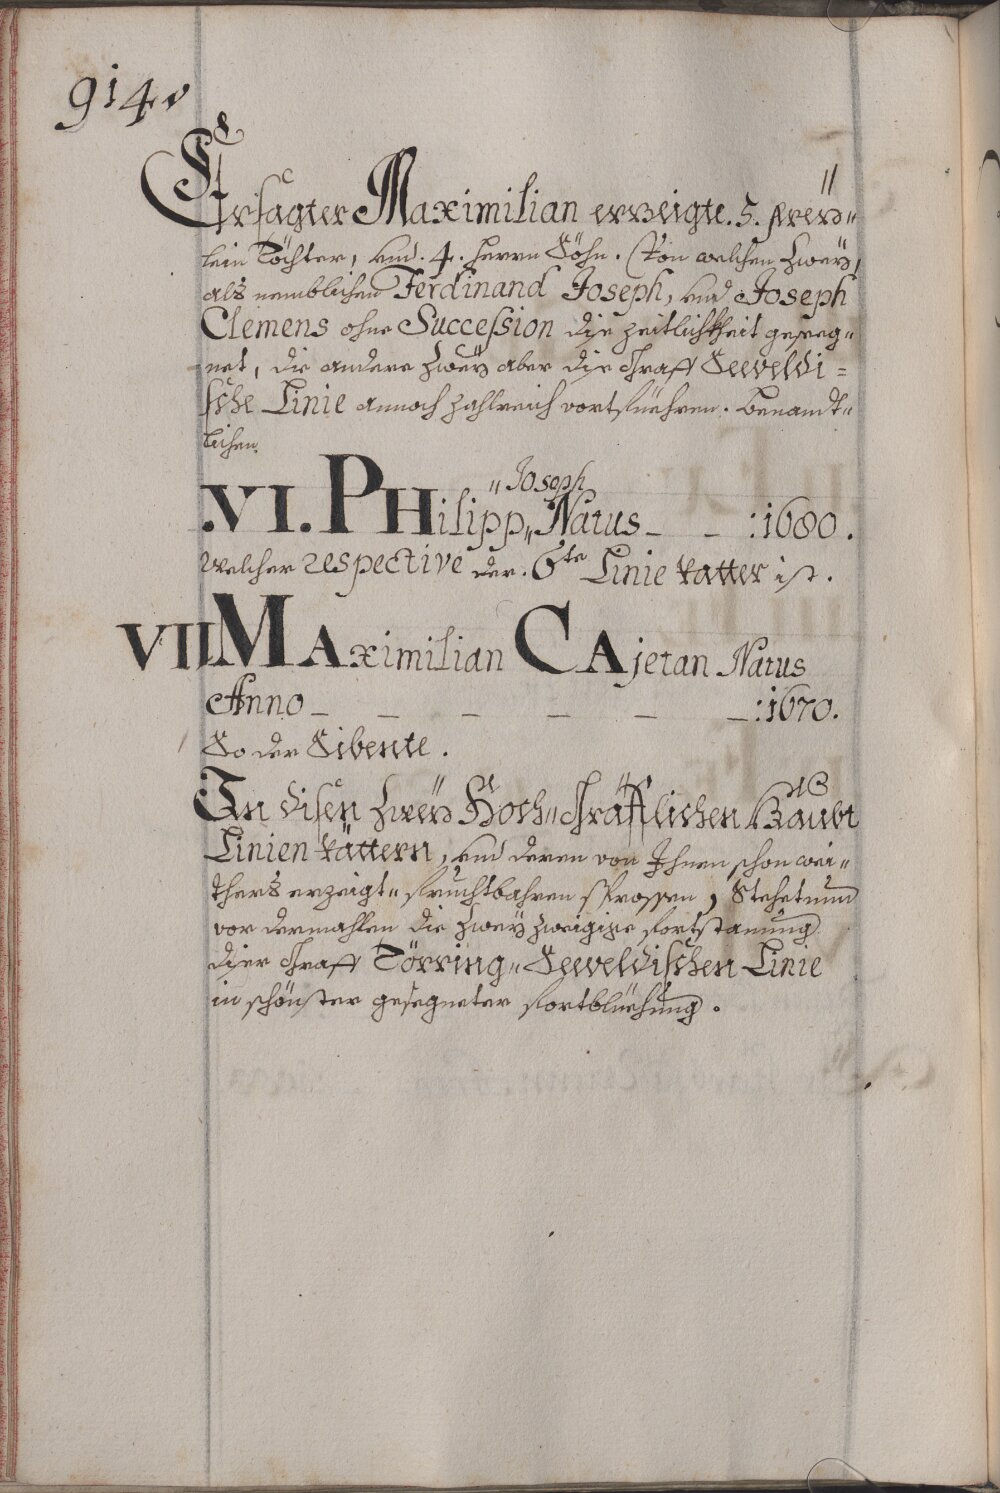 914v
Ersagter Maximilian erzeigte. 5. frew-
lein Töchter, und. 4. Herrn Söhn. Von welchen Zwey,
als nemblichen Ferdinand Joseph, und Joseph
Clemens ohne Succession die Zeitlichkheit geseg-
net, die andere Zwey aber die Graff Seeveldi=
sche Linie annoch zahlreich vortfüehren. benandt-
lichen.
.VI. PHilipp „Joseph„ Natus – – :1680.
Welcher respective der. 6te Linie Vatter ist.
VII MAximilian CAjetan Natus
Anno – – – – – – :1670.
So der Sibente.
An disen Zwey Hoch-Gräfflichen Haubt
Linien Vättern, und deren von Ihnen schon wei-
thers erzeigt-fruchtbahren Sprossen, Stehet nun
vor dermahlen die Zwey Zweigige fortstamung
dier Graff Törring-Seeveldischen Linie
in schönster gesegneter fortblüehung.